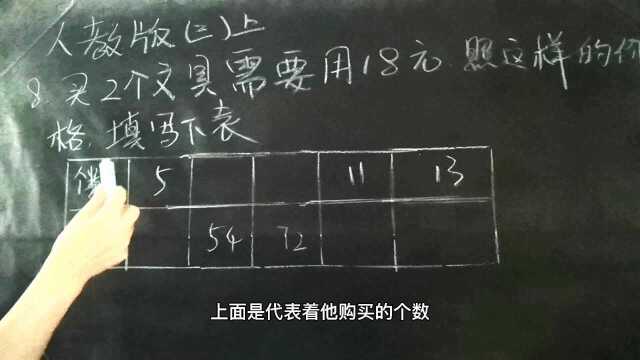 人教版(三)上
8.买2个文具需要用18元.照这样的价
格,填写下表
5 11 13
54 72
上面是代表着他购买的个数